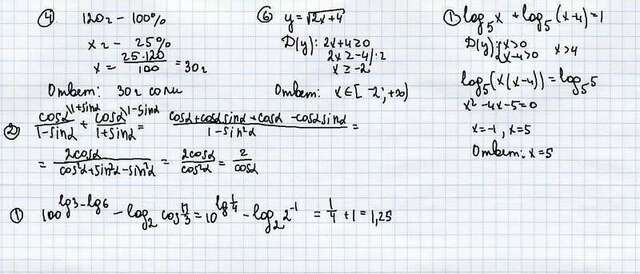 ④ 120г - 100%
xг - 25%
x = 25·120/100 = 30г
Ответ: 30г соли
⑥ y = √2x+4
D(y): 2x+4≥0
2x ≥ -4 |:2
x ≥ -2
Ответ: x∈[-2; +∞)
① log₅x + log₅(x-4) = 1
D(y): {x>0 x-4>0 x>4
log₅(x(x-4)) = log₅5
x² - 4x - 5 = 0
x = -1, x = 5
Ответ: x = 5
② cosα \1+sinα / 1-sinα + cosα \1-sinα / 1+sinα = cosα + cosα sinα + cosα - cosα sinα / 1 - sin²α =
= 2cosα / cos²α + sin²α - sin²α = 2cosα / cos²α = 2 / cosα
① 100^(lg3-lg6) - log₂cos π/3 = 10^(lg 1/4) - log₂2⁻¹ = 1/4 + 1 = 1,25